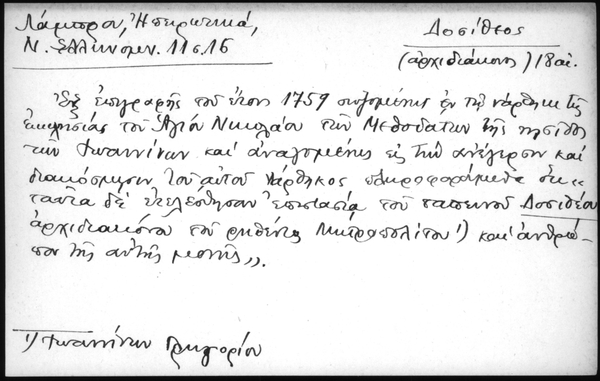 Λάμπρου, Ἠπειρωτικά,
Ν. Ἑλληνομν. 11 σ. 16
Δοσίθεος
(ἀρχιδιάκονος) 18 αἰ.
Ἐξ ἐπιγραφῆς τοῦ ἔτους 1759 σωζομένης ἐν τῷ νάρθηκι τῆς
ἐκκλησίας τοῦ Ἁγίου Νικολάου τῶν Μεθοδάτων τῆς νησίδος
τῶν Ἰωαννίνων καὶ ἀναγομένης εἰς τὴν ἀνέγερσιν καὶ
διακόσμησιν τοῦ αὐτοῦ νάρθηκος πληροφορούμεθα ὅτι "
ταῦτα δὲ ἐτελέσθησαν ἐπιστασίᾳ τοῦ ταπεινοῦ Δοσιθέου
ἀρχιδιακόνου τοῦ ῥηθέντος Μητροπολίτου 1) καὶ ἀνθρώ-
που τῆς αὐτῆς μονῆς".
1) Ἰωαννίνων Γρηγορίου